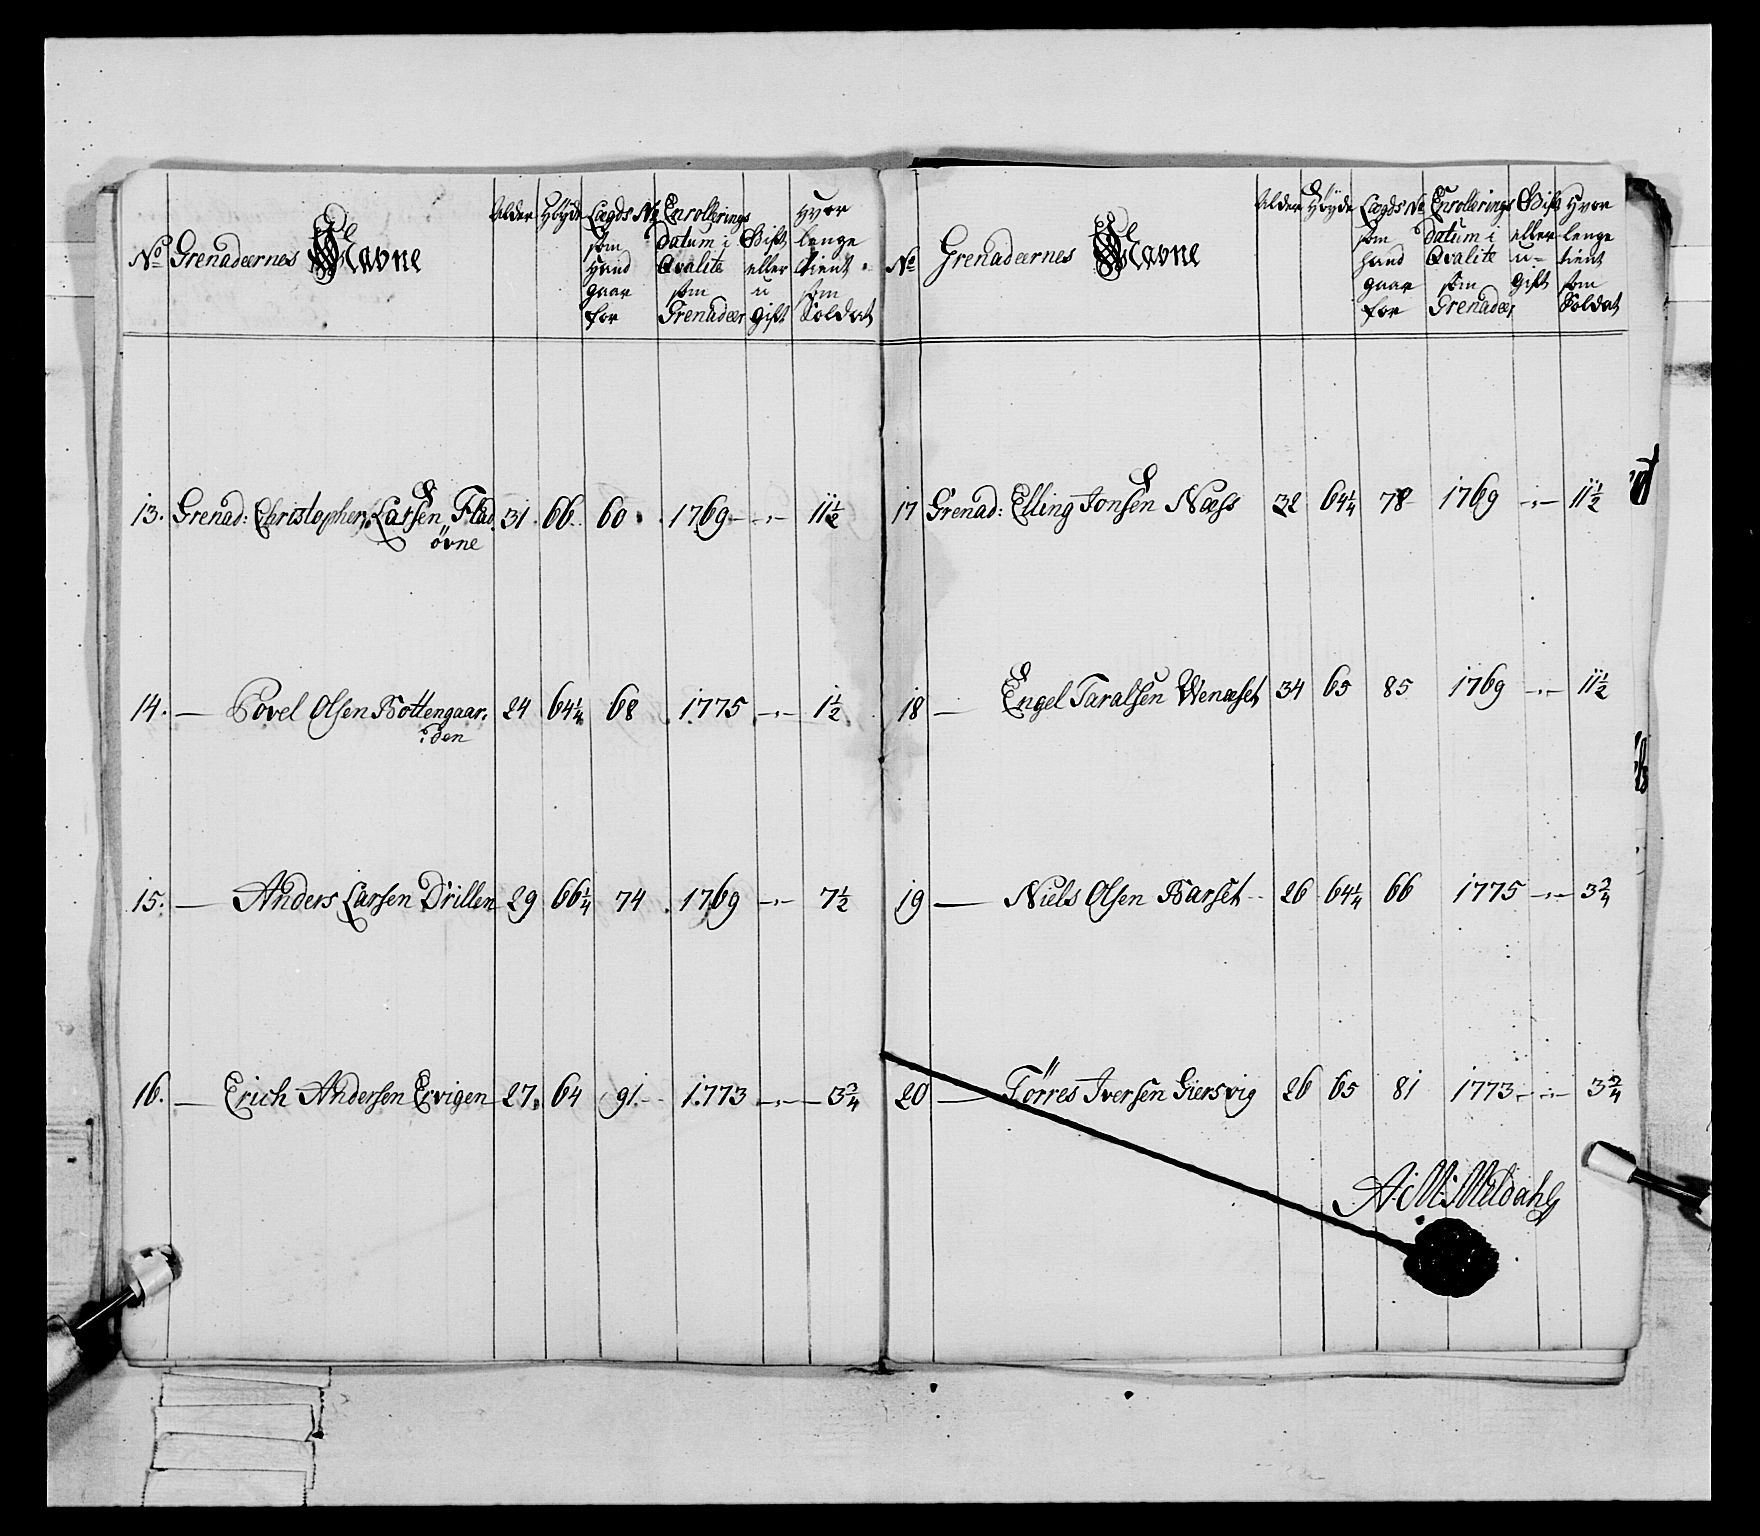 No Grenadeernes Navne Alder Høyde Lægds No som hand gaar for Enrollerings datum i Qvalite som Grenadeer Gift eller u gift Hvor lenge tient som Soldat
13. Grenad: Christopher Larsen Flad 31. 66. 60 1769 -"- 11 1/2
øvne
14. — Povel Olsen Bottengaar: 24 64 1/4 68 1775 -"- 1 1/2
:den
15. — Anders Larsen Drillen 29 66 1/4 74 1769 -"- 7 1/2
16. — Erich Andersen Ervigen 27. 64 91. 1773 -"- 3 3/4
No Grenadeernes Navne Alder Høyde Lægds No som hand gaar for Enrollerings datum i Qvalite som Grenadeer Gift eller u- gift Hvor lenge tient som Soldat
17 Grenad: Elling Jonsen Næss 32 64 1/4 78 1769 -"- 11 1/2
18 — Engel Taralsen Wenæset 34 65 85 1769 -"- 11 1/2
19 — Niels Olsen Barset 26 64 1/4 66 1775 -"- 3 3/4
20 — Tørres Iversen Giersvig 26 65 81 1773 -"- 3 3/4
A: M: Meldahl